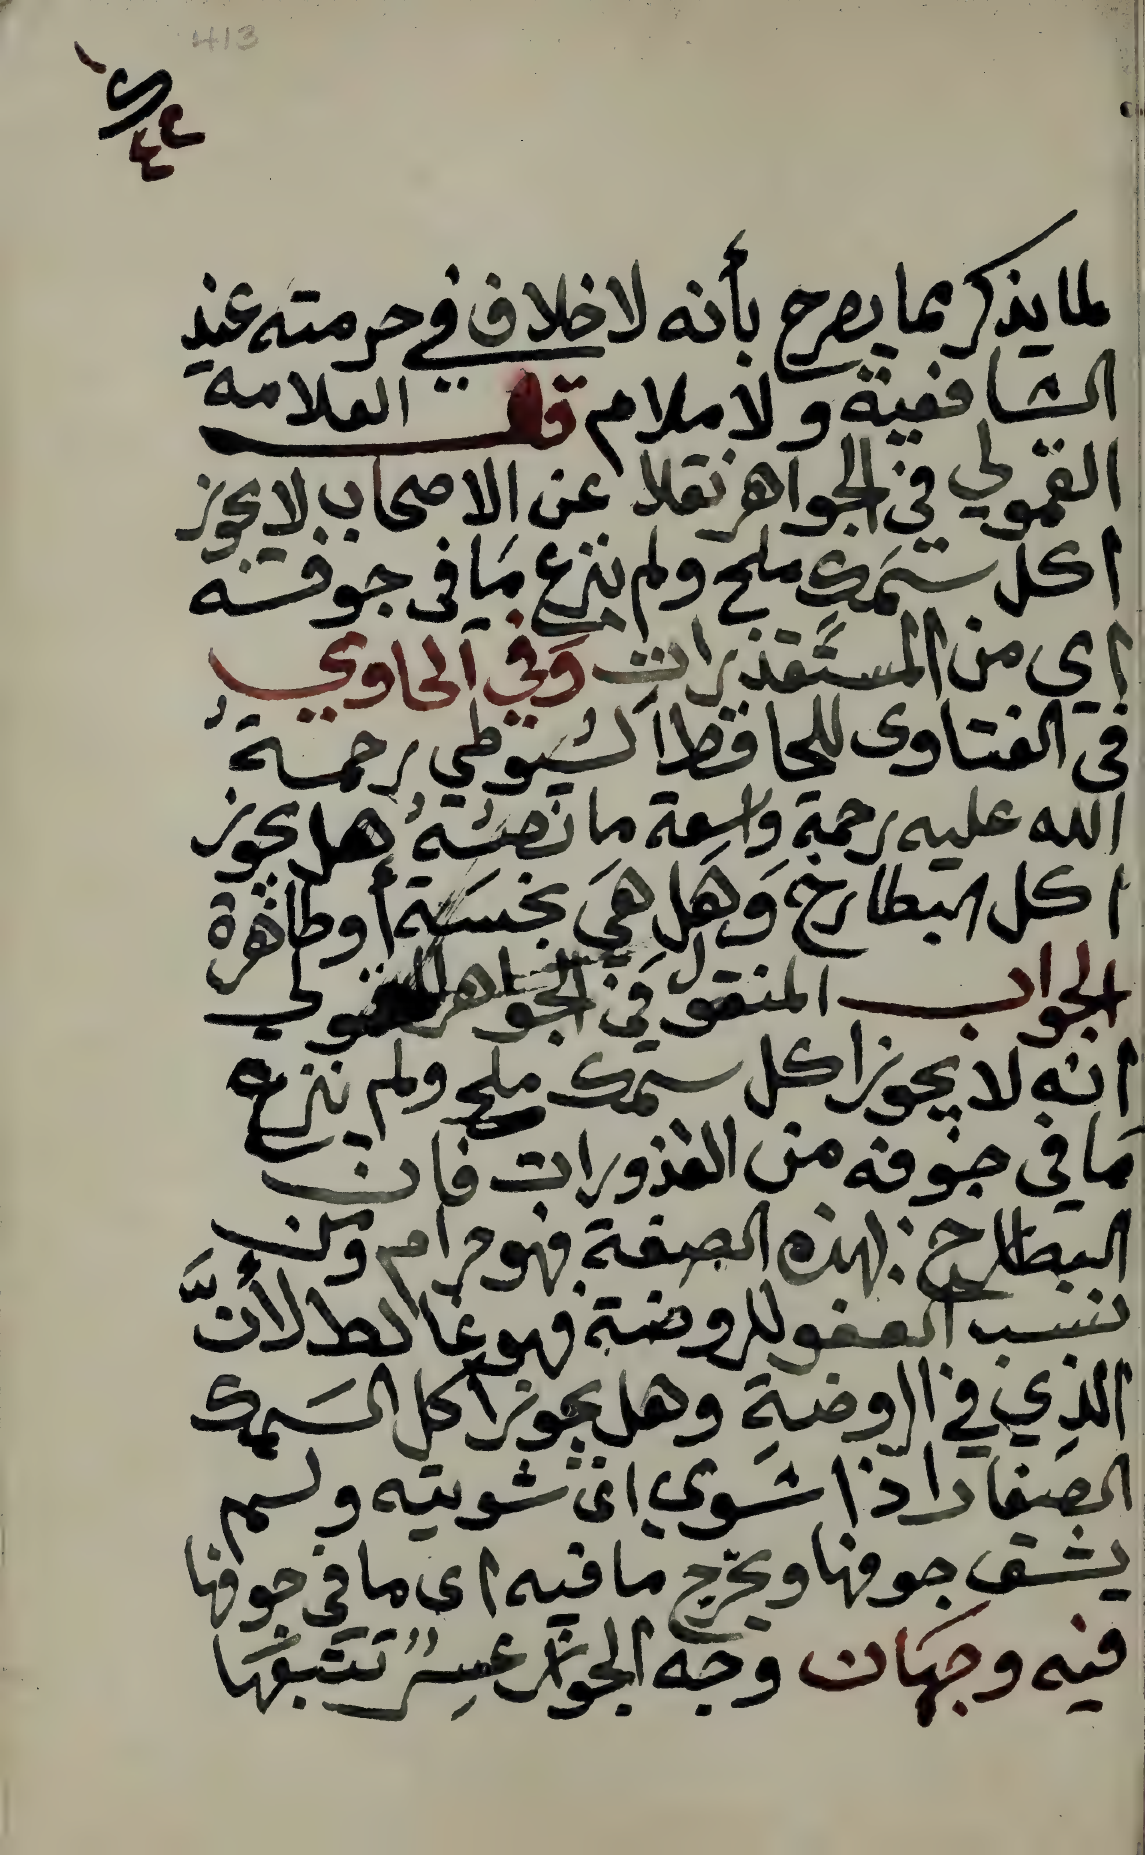 413
لما يذكر مما يصرح بأنه لا خلاف في حرمته عند
الشافعية ولا ملام قال العلامة
القمولي في الجواهر نقلا عن الاصحاب لا يجوز
اكل سمك ملح ولم ينزع ما في جوفه
اي من المستقذرات وفي الحاوي
في الفتاوى للحافظ السيوطي رحمة
الله عليه رحمة واسعة ما نصه هل يجوز
اكل البطارخ وهل هي نجسة أو طاهرة
الجواب المنقول في الجواهر للقمولي
انه لا يجوز اكل سمك ملح ولم ينزع
ما في جوفه من القذورات فان
البطارخ بهذه الصفة فهو حرام ومن
نسب العفو للروضة فهو غالط لأنّ
الذي في الروضة وهل يجوز اكل السمك
الصغار اذا شوي اي شويته ولم
يشق جوفها ويخرج ما فيه اى ما في جوفها
فيه وجهان وجه الجواز عسر تتبعها